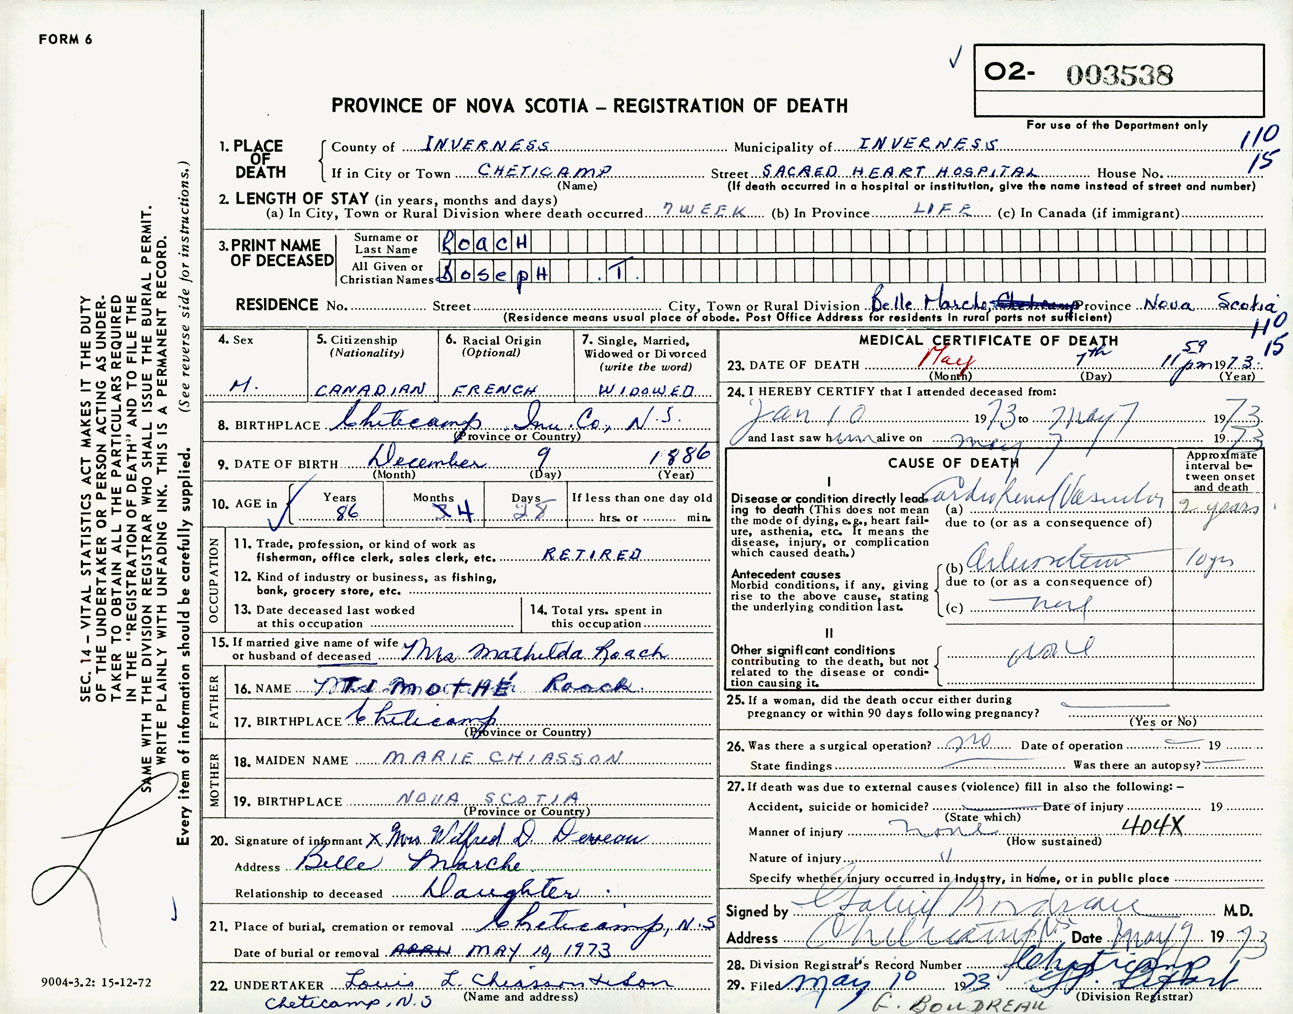 FORM 6
✓ O2- 003538
PROVINCE OF NOVA SCOTIA – REGISTRATION OF DEATH
For use of the Department only
1. PLACE OF DEATH
County of INVERNESS Municipality of INVERNESS 110
If in City or Town CHETICAMP Street SACRED HEART HOSPITAL House No. 15
(Name) (If death occurred in a hospital or institution, give the name instead of street and number)
2. LENGTH OF STAY (in years, months and days)
(a) In City, Town or Rural Division where death occurred 7 WEEK (b) In Province LIFE (c) In Canada (if immigrant)
3. PRINT NAME OF DECEASED
Surname or Last Name ROACH
All Given or Christian Names JOSEPH .T.
RESIDENCE No. Street City, Town or Rural Division Belle Marche, Cheticamp Province Nova Scotia
(Residence means usual place of abode. Post Office Address for residents in rural parts not sufficient)
110
15
4. Sex M.
5. Citizenship (Nationality) CANADIAN
6. Racial Origin (Optional) FRENCH
7. Single, Married, Widowed or Divorced (write the word) WIDOWED
8. BIRTHPLACE Cheticamp Inv. Co., N.S.
(Province or Country)
9. DATE OF BIRTH December 9 1886
(Month) (Day) (Year)
10. AGE in ✓ Years 86 Months 4 Days 28 If less than one day old hrs. or min.
OCCUPATION
11. Trade, profession, or kind of work as fisherman, office clerk, sales clerk, etc. RETIRED
12. Kind of industry or business, as fishing, bank, grocery store, etc.
13. Date deceased last worked at this occupation
14. Total yrs. spent in this occupation
15. If married give name of wife or husband of deceased Mrs Mathilda Roach
FATHER
16. NAME TIMOTHÉ Roach
17. BIRTHPLACE Cheticamp
(Province or Country)
MOTHER
18. MAIDEN NAME MARIE CHIASSON
19. BIRTHPLACE NOVA SCOTIA
(Province or Country)
20. Signature of informant X Mrs Wilfred D. Deveau
Address Belle Marche
Relationship to deceased Daughter
21. Place of burial, cremation or removal Cheticamp, N.S
Date of burial or removal APRIL MAY 10, 1973
22. UNDERTAKER Louis L. Chiasson & Son
(Name and address)
Cheticamp, N.S
MEDICAL CERTIFICATE OF DEATH
23. DATE OF DEATH May 7th 11 59 pm 1973
(Month) (Day) (Year)
24. I HEREBY CERTIFY that I attended deceased from:
Jan 10 1973 to May 7 1973
and last saw him alive on May 7 1973
CAUSE OF DEATH
Approximate interval between onset and death
I
Disease or condition directly leading to death (This does not mean the mode of dying, e.g., heart failure, asthenia, etc. It means the disease, injury, or complication which caused death.)
(a) Cardio Renal Vascular 2 years
due to (or as a consequence of)
Antecedent causes
Morbid conditions, if any, giving rise to the above cause, stating the underlying condition last.
(b) 10 yrs
due to (or as a consequence of)
(c) none
II
Other significant conditions contributing to the death, but not related to the disease or condition causing it.
none
25. If a woman, did the death occur either during pregnancy or within 90 days following pregnancy?
(Yes or No)
26. Was there a surgical operation? no Date of operation 19
State findings Was there an autopsy?
27. If death was due to external causes (violence) fill in also the following: –
Accident, suicide or homicide? Date of injury 19
(State which)
Manner of injury none 404X
(How sustained)
Nature of injury "
Specify whether injury occurred in industry, in home, or in public place
Signed by Gabriel Boudreau M.D.
Address Cheticamp NS Date May 9 1973
28. Division Registrar's Record Number Cheticamp
29. Filed May 10 1973
(Division Registrar)
G. BOUDREAU
SEC. 14 – VITAL STATISTICS ACT MAKES IT THE DUTY
OF THE UNDERTAKER OR PERSON ACTING AS UNDER-
TAKER TO OBTAIN ALL THE PARTICULARS REQUIRED
IN THE "REGISTRATION OF DEATH" AND TO FILE THE
SAME WITH THE DIVISION REGISTRAR WHO SHALL ISSUE THE BURIAL PERMIT.
WRITE PLAINLY WITH UNFADING INK. THIS IS A PERMANENT RECORD.
Every item of information should be carefully supplied. (See reverse side for instructions.)
9004-3.2: 15-12-72